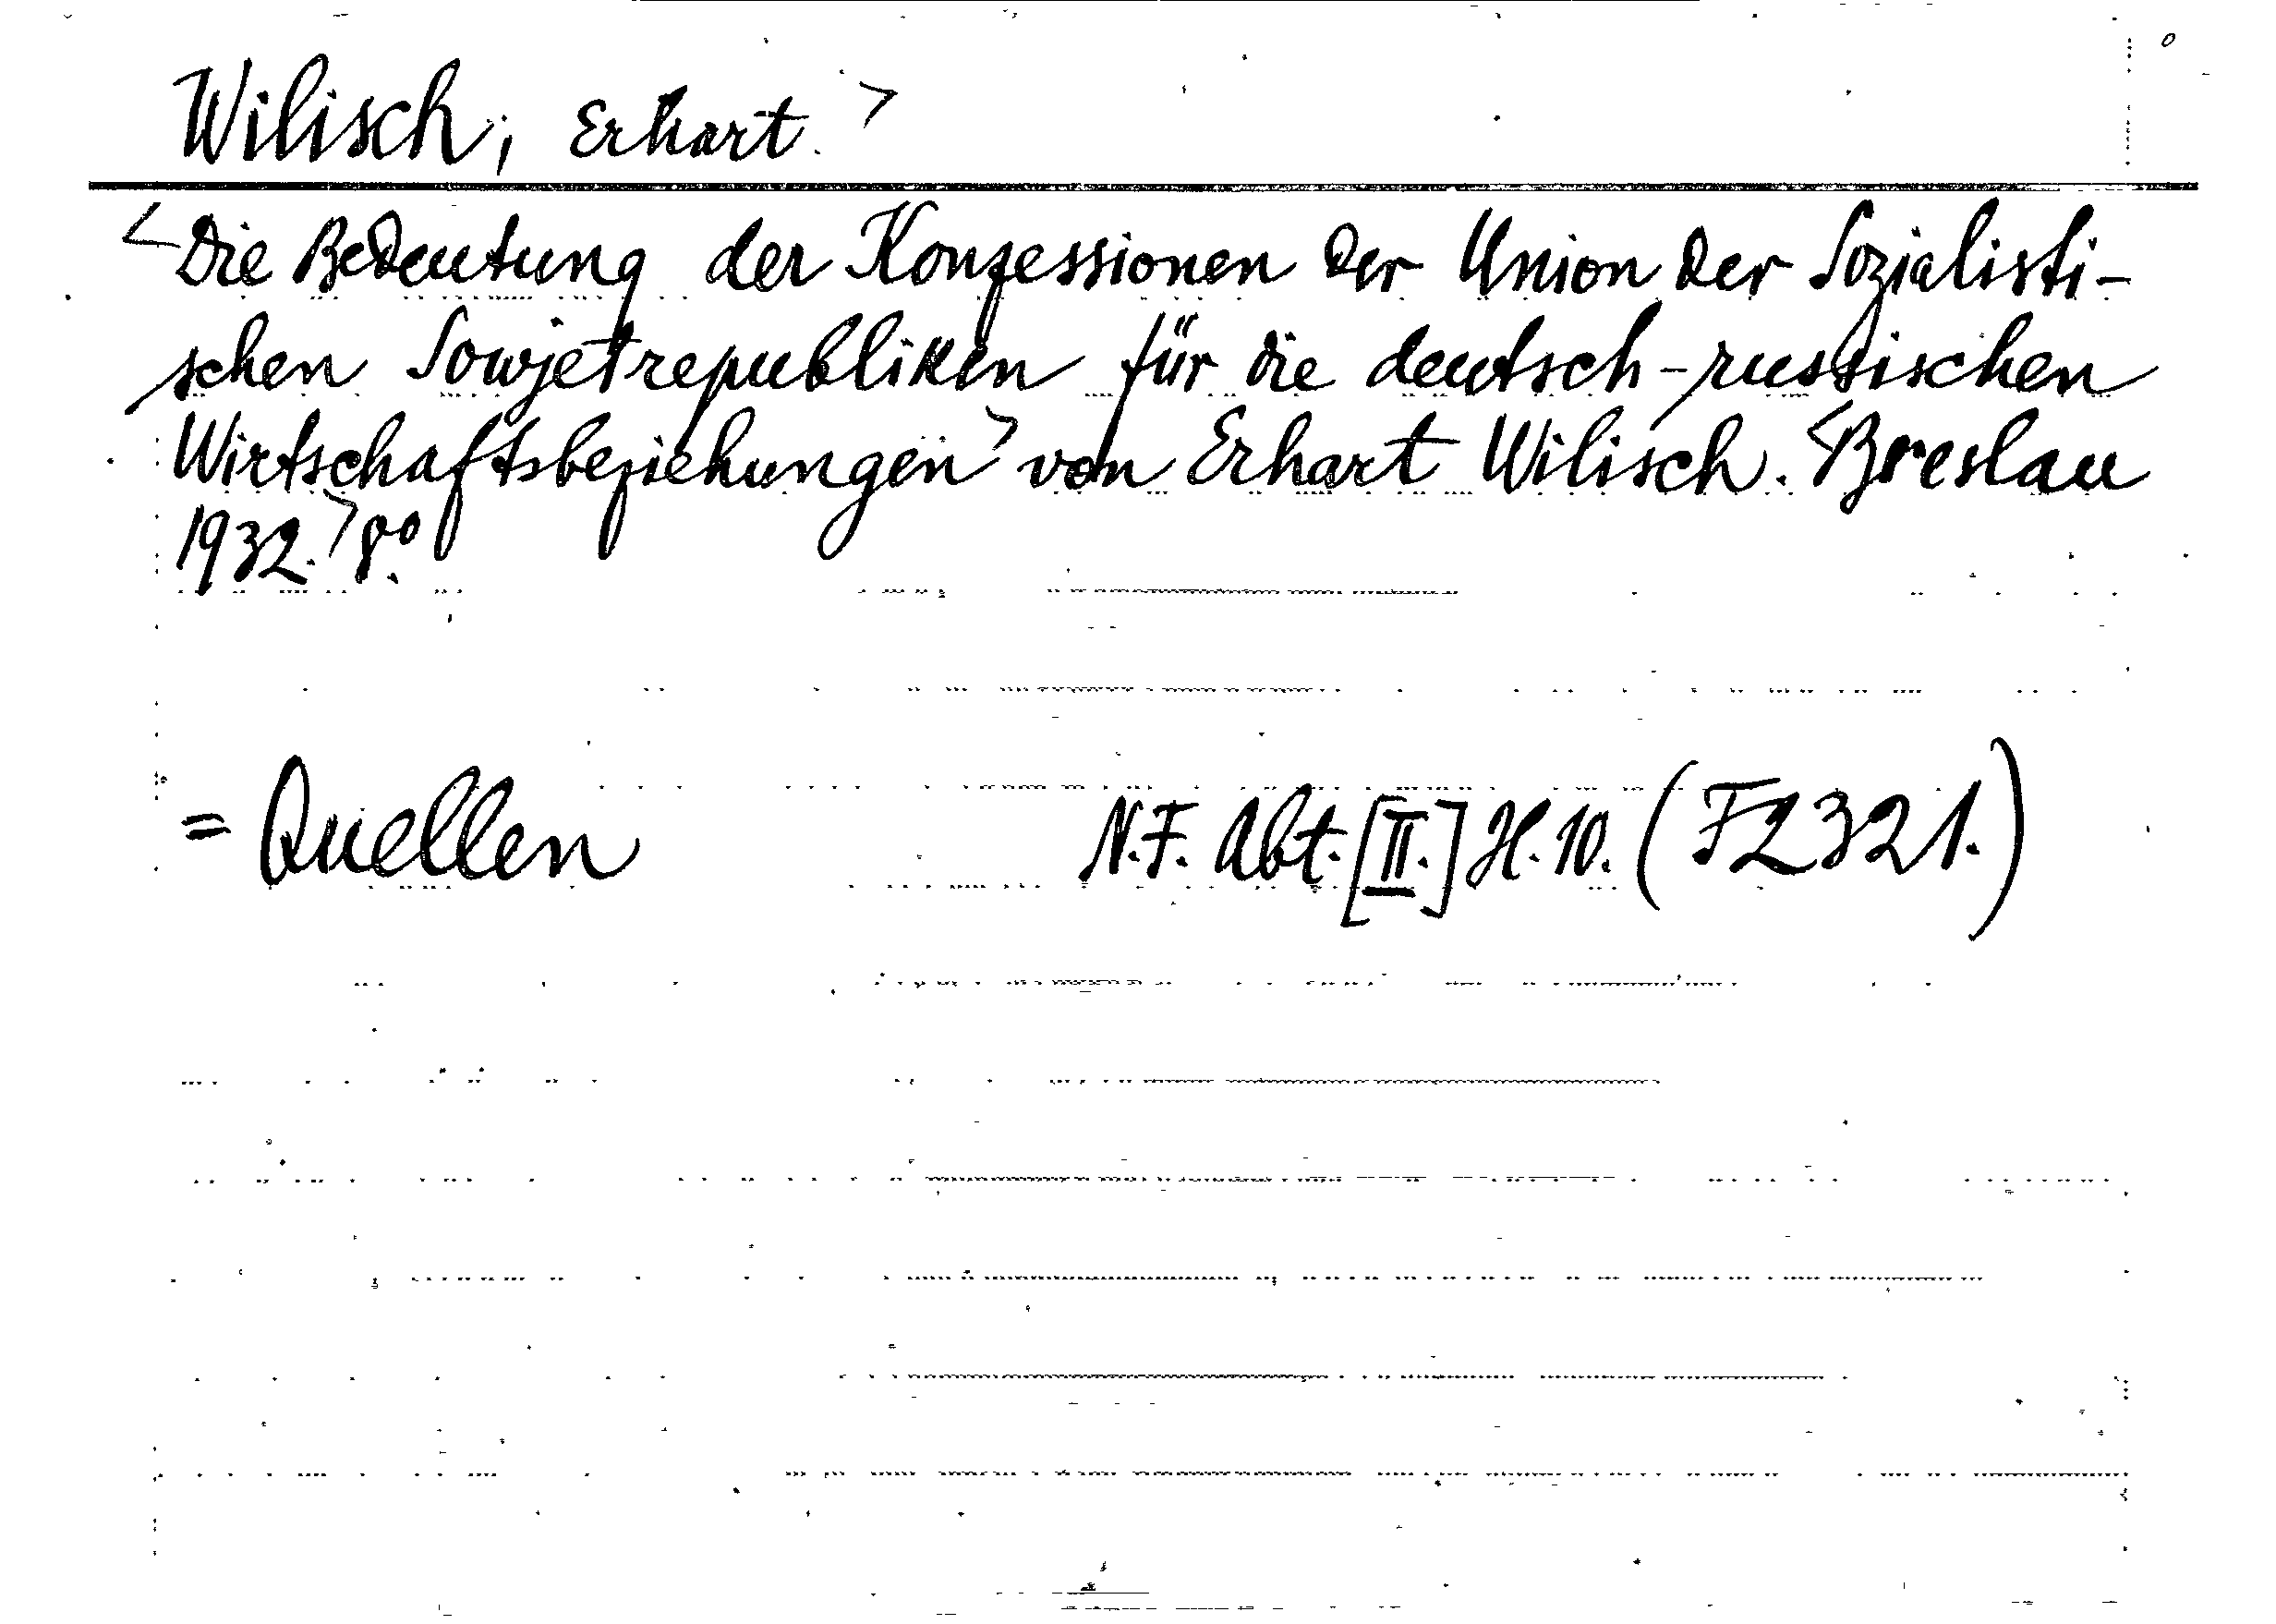 Wilisch, Erhart.>
<Die Bedeutung der Konzessionen der Union der Sozialisti-
schen Sowjetrepubliken für die deutsch-russischen
Wirtschaftsbeziehungen> von Erhart Wilisch. <Breslau
1932.> 8°.
= Quellen N.F. Abt.[II.] H.10. (F2321.)